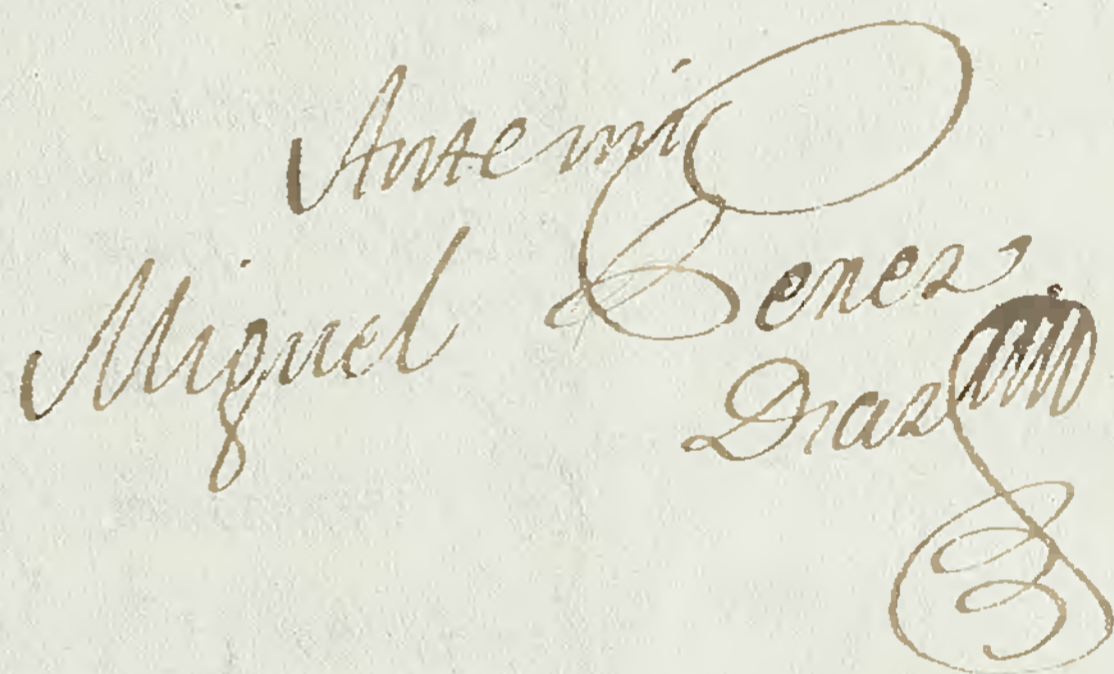 Ante mi
Miguel Perez
Diaz